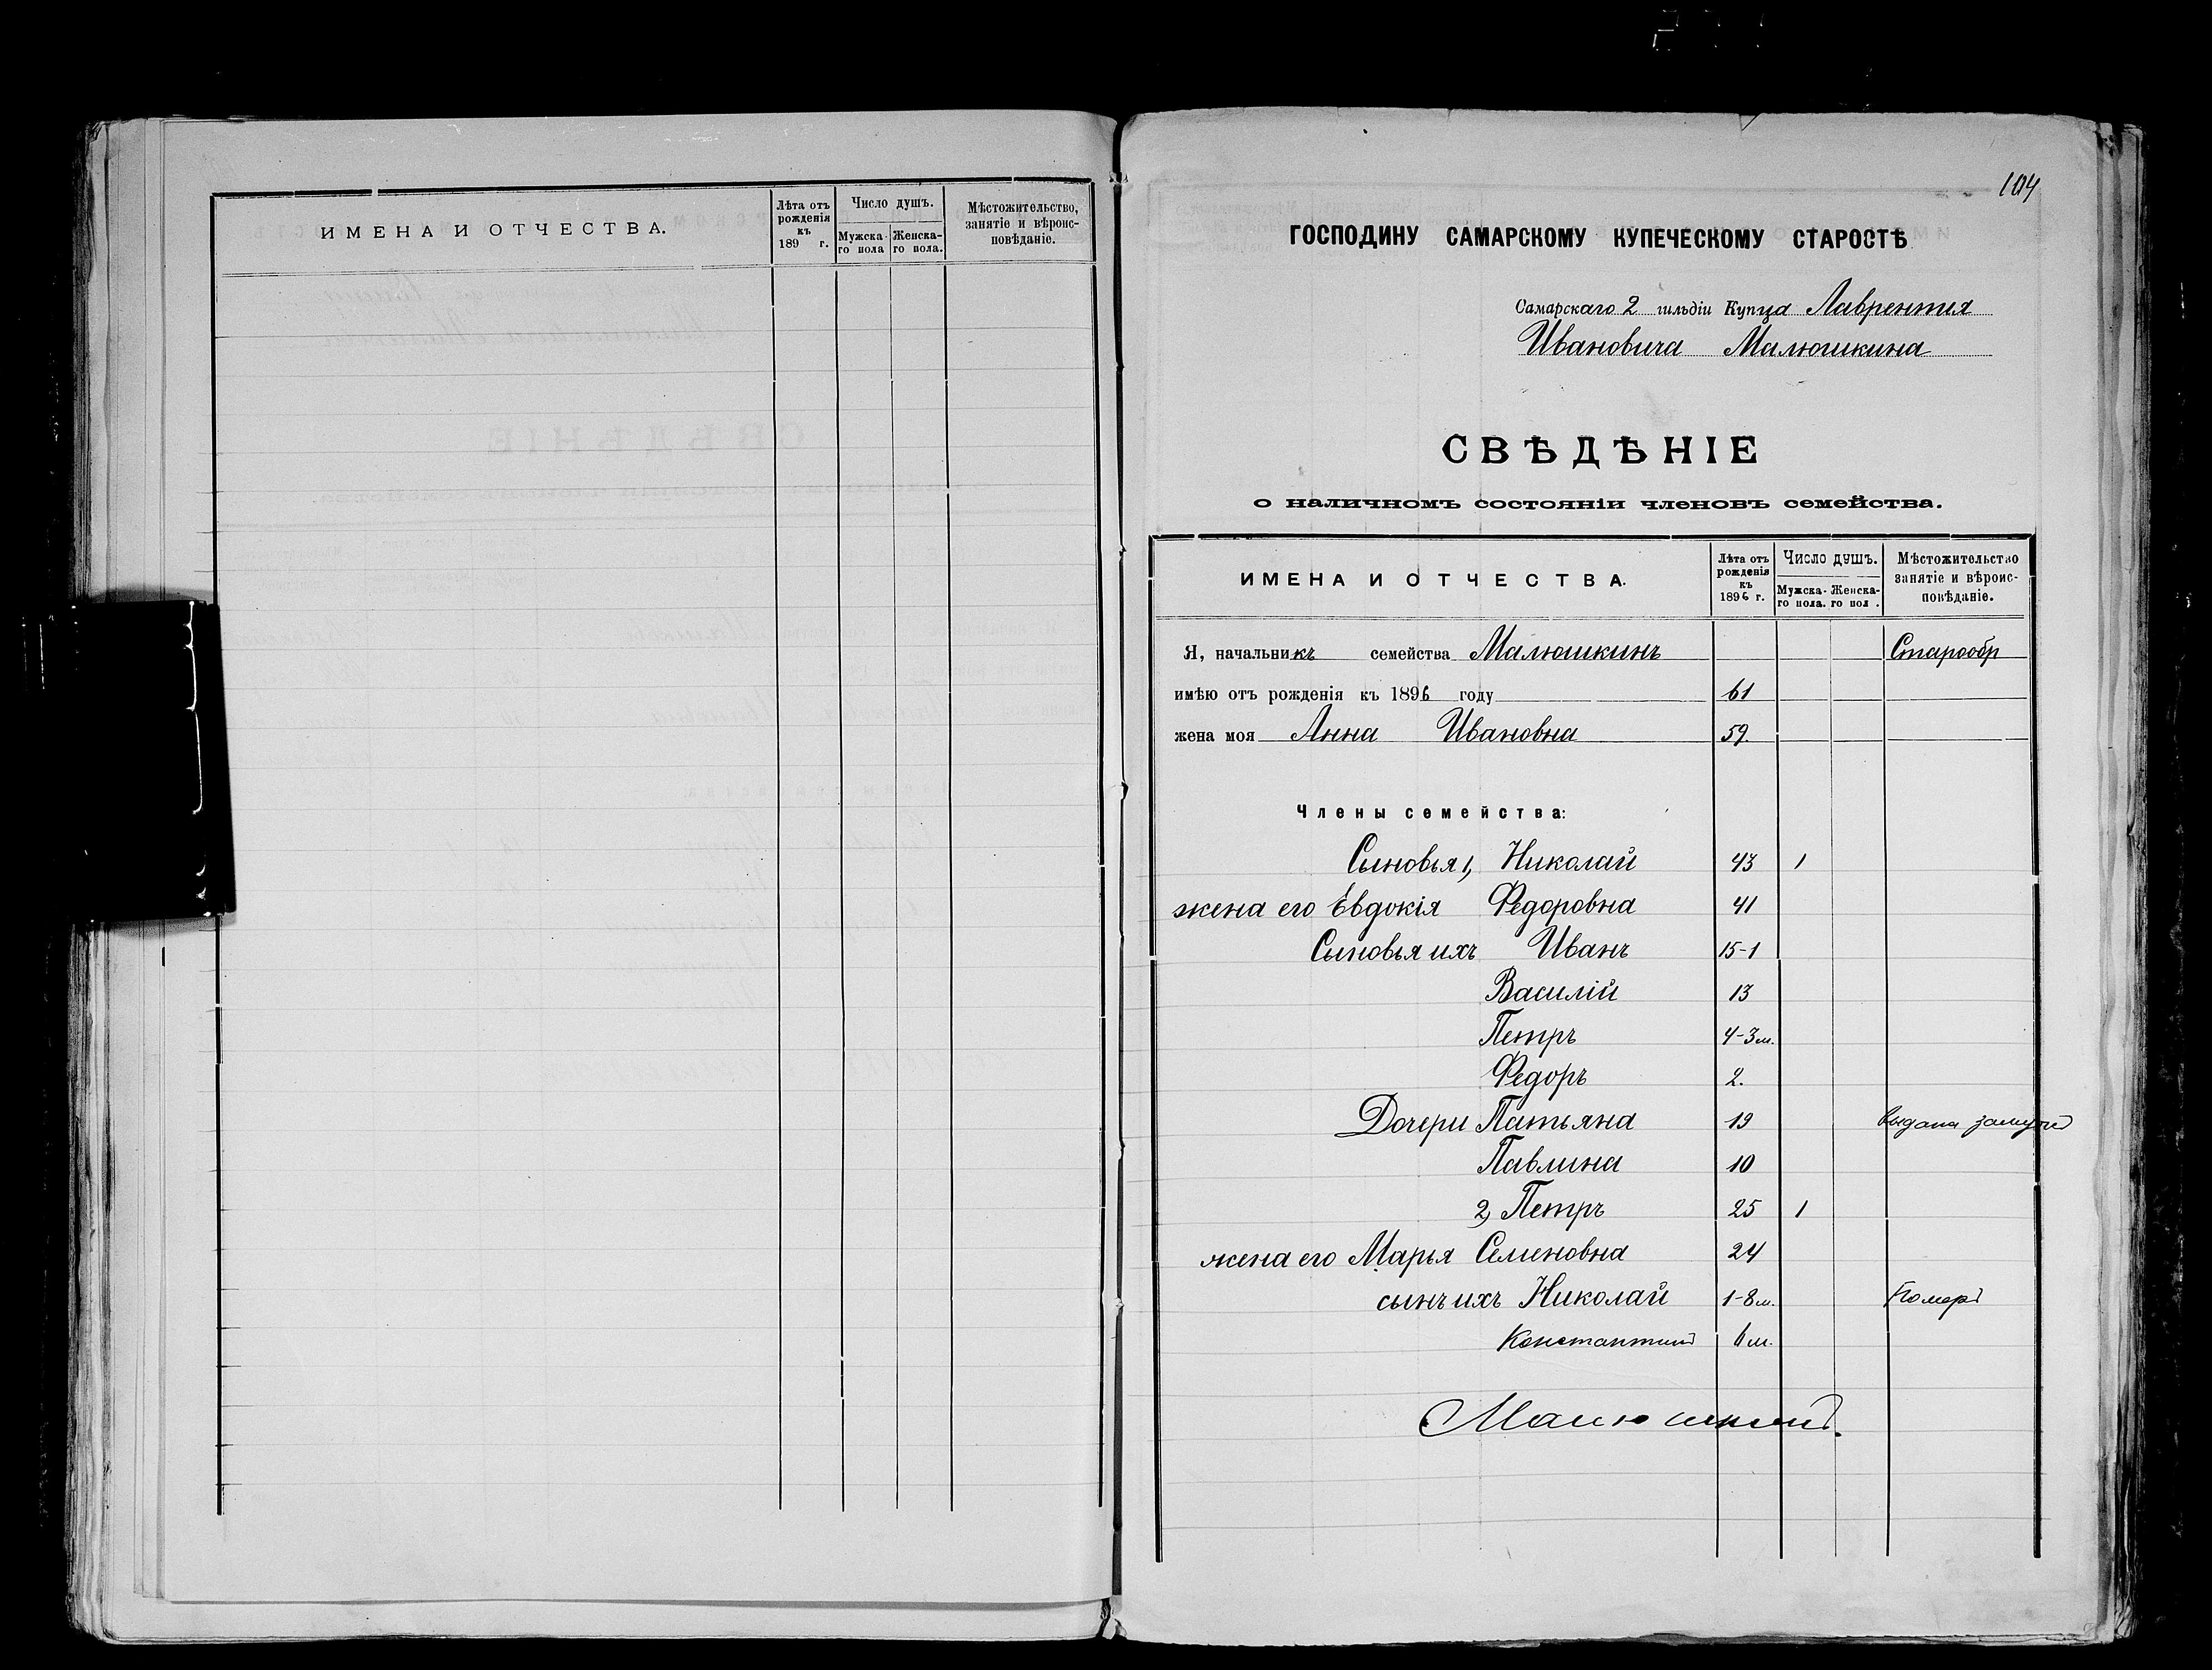 ИМЕНА И ОТЧЕСТВА.
Лѣта отъ рожденія къ 189 г.
Число душъ.
Мужска-го пола
Женска-го пола.
Мѣстожительство, занятіе и вѣроис-повѣданіе.
104
ГОСПОДИНУ САМАРСКОМУ КУПЕЧЕСКОМУ СТАРОСТѢ
Самарскаго 2 гильдіи Купца Лаврентия
Ивановича Малюшкина
СВѢДѢНІЕ
о наличномъ состояніи членовъ семейства.
ИМЕНА И ОТЧЕСТВА.
Лѣта отъ рожденія къ 1896 г.
Число душъ.
Мужска-го пола.
Женска-го пол .
Мѣстожительство занятіе и вѣроис-повѣданіе.
Я, начальникъ семейства Малюшкинъ Старообр
имѣю отъ рожденія къ 1896 году 61
жена моя Анна Ивановна 59
Члены семейства:
Сыновья 1, Николай 43 1
жена его Евдокія Федоровна 41
Сыновья ихъ Иванъ 15-1
Василій 13
Петръ 4-3 м.
Федоръ 2.
Дочери Татьяна 19 выдана замужъ
Павлина 10
2, Петръ 25 1
жена его Марья Семеновна 24
сынъ ихъ Николай 1-8 м. Померъ
Константинъ 6 м.
Малюшкинъ.